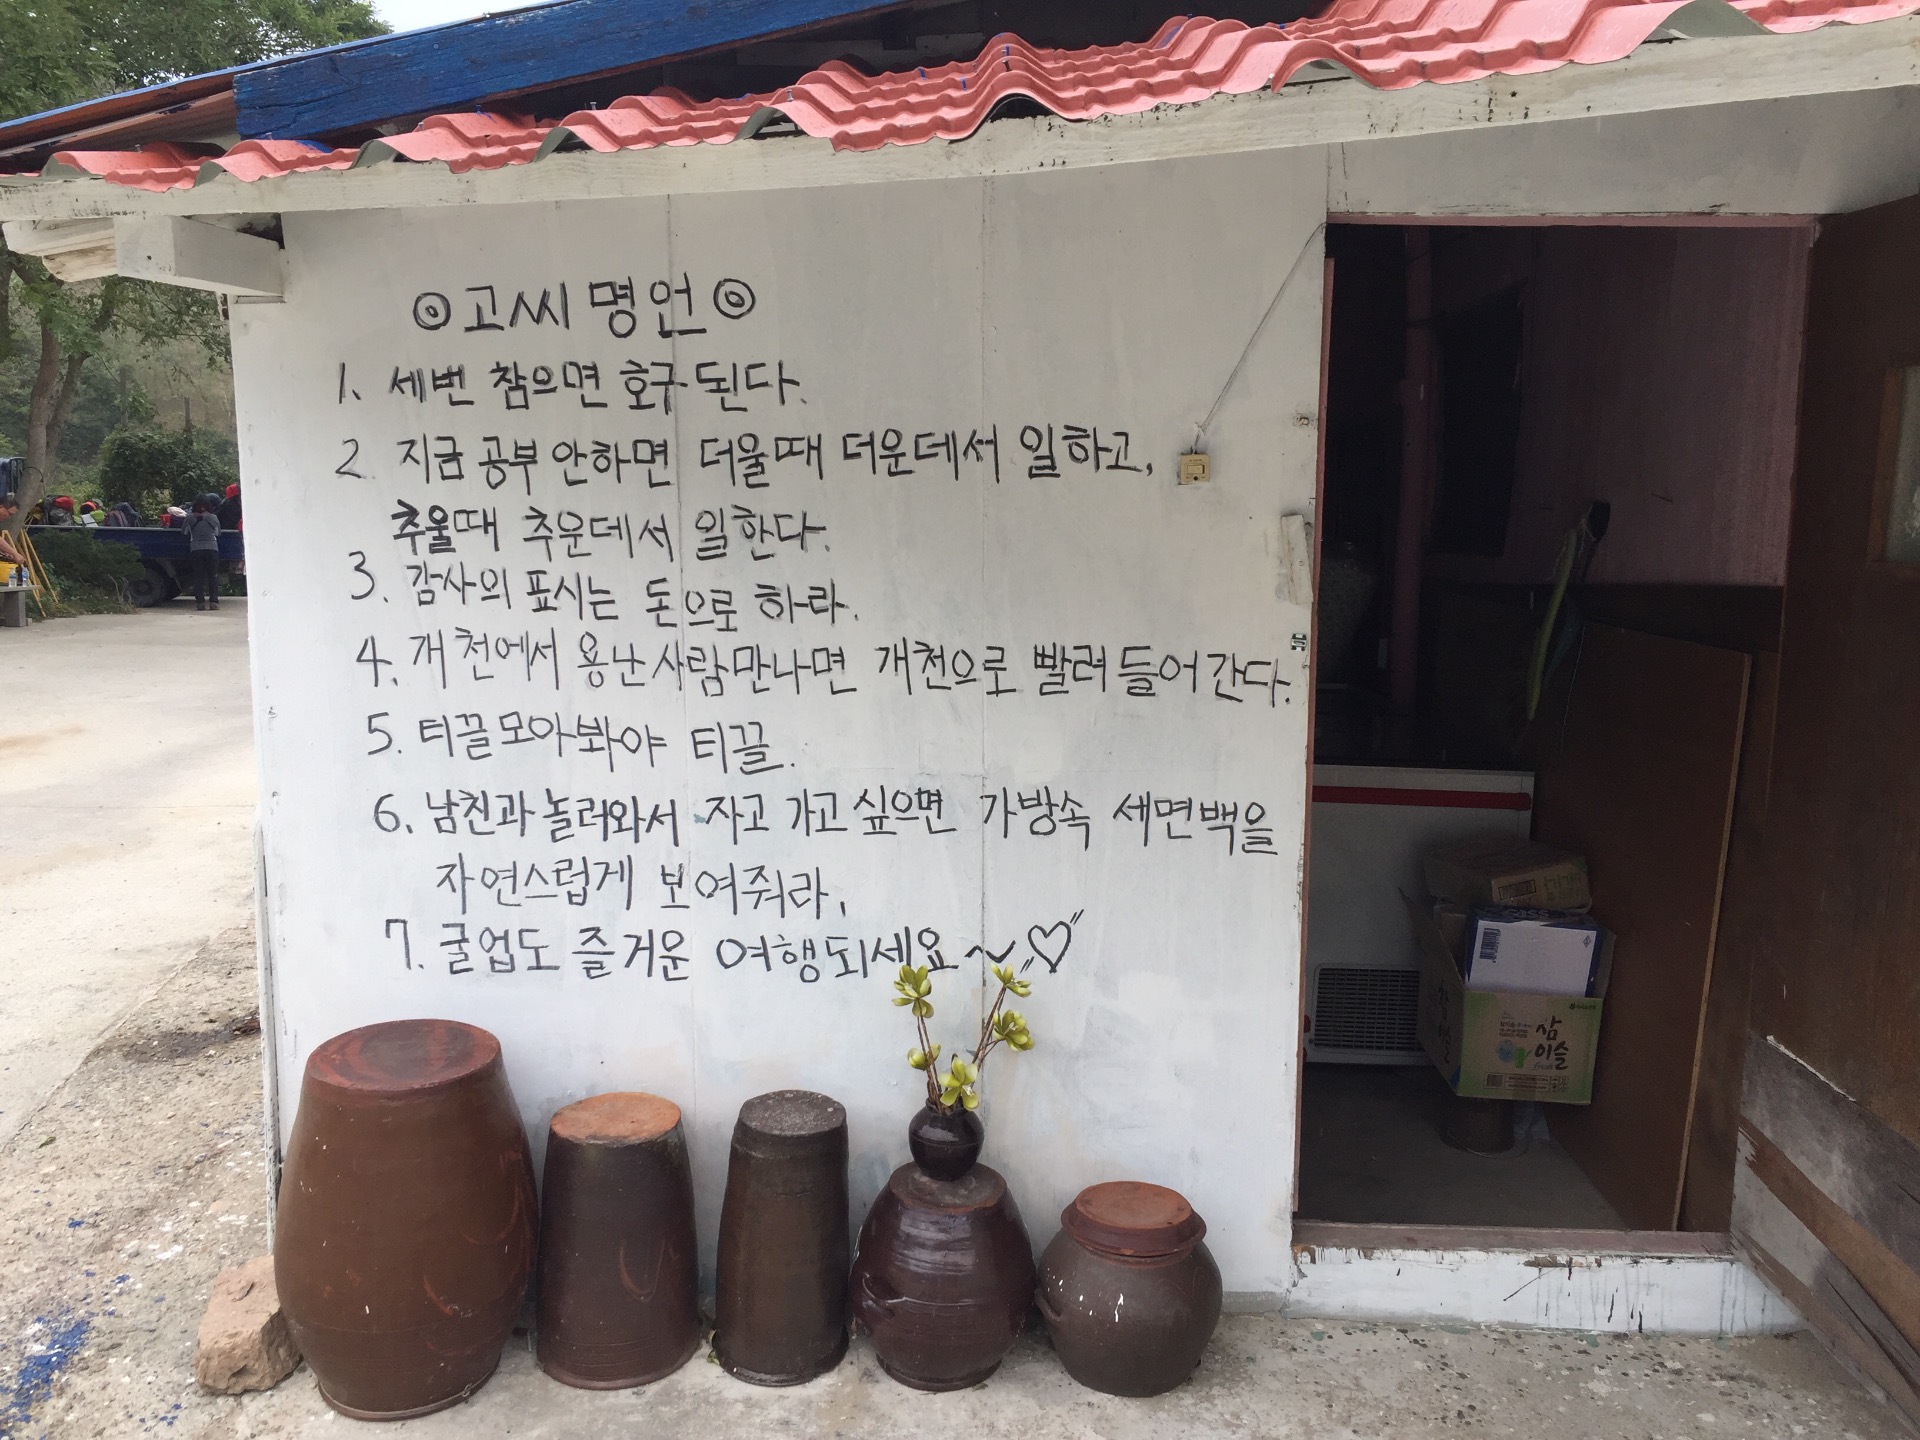 ◎고씨 명언◎
1. 세번 참으면 호구된다.
2. 지금 공부 안하면 더울때 더운데서 일하고,
추울때 추운데서 일한다.
3. 감사의 표시는 돈으로 하라.
4. 개천에서 용난사람만나면 개천으로 빨려들어간다.
5. 티끌모아봐야 티끌.
6. 남친과 놀러와서 자고 가고 싶으면 가방속 세면백을
자연스럽게 보여줘라.
7. 굴업도 즐거운 여행되세요~♡
참
이슬
fresh